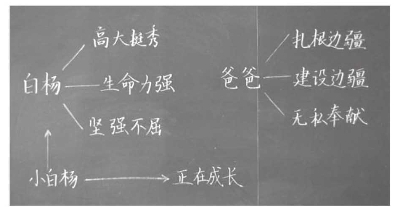 高大挺秀
白杨 生命力强
坚强不屈
小白杨 正在成长
扎根边疆
爸爸 建设边疆
无私奉献